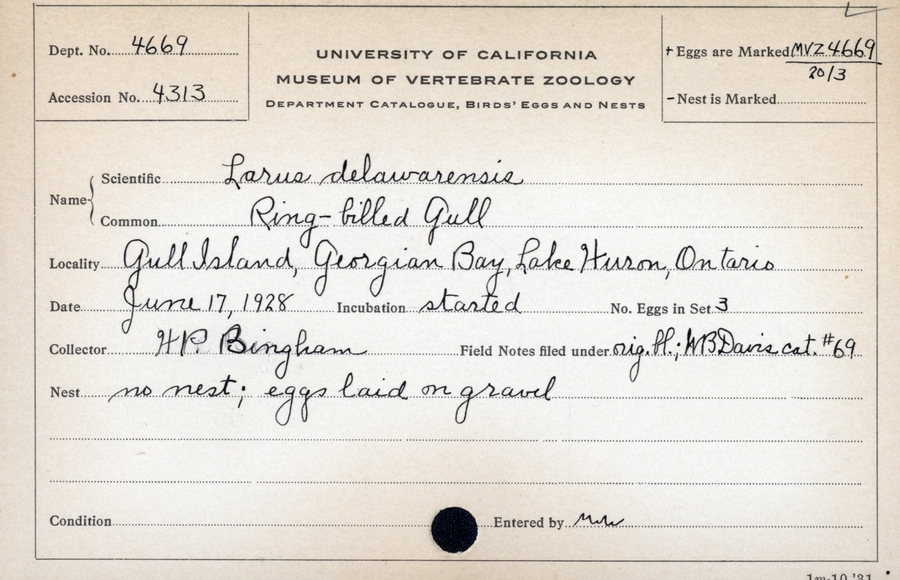 Dept. No. 4669
Accession No. 4313
UNIVERSITY OF CALIFORNIA
MUSEUM OF VERTEBRATE ZOOLOGY
DEPARTMENT CATALOGUE, BIRDS' EGGS AND NESTS
+ Eggs are Marked MVZ4669
20/3
- Nest is Marked
Name Scientific Larus delawarensis
Common Ring-billed Gull
Locality Gull Island, Georgian Bay, Lake Huron, Ontario
Date June 17, 1928 Incubation started No. Eggs in Set 3
Collector H.P. Bingham Field Notes filed under orig. bl.; WBDavis cat. #69
Nest no nest; eggs laid on gravel
Condition Entered by
1m-10 '31